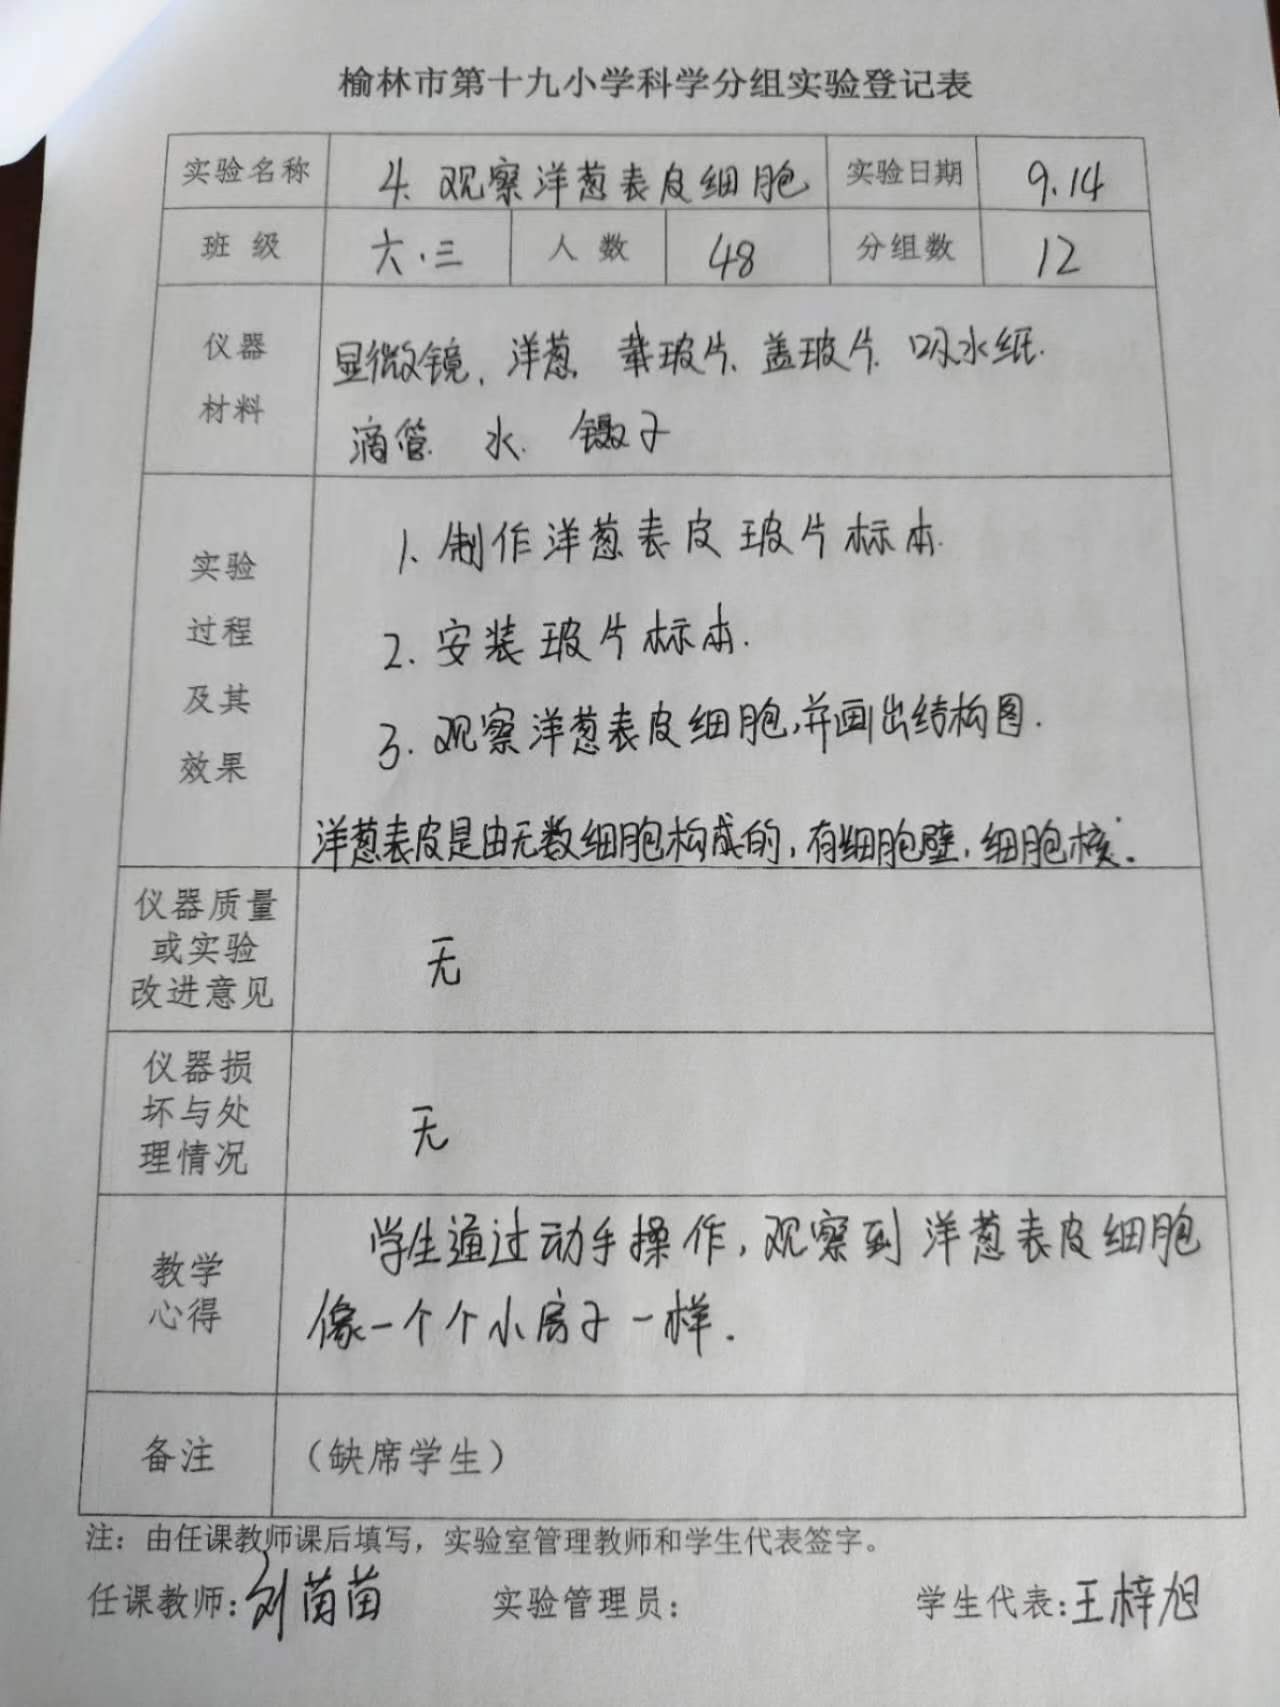 榆林市第十九小学科学分组实验登记表
实验名称 4. 观察洋葱表皮细胞 实验日期 9.14
班 级 六.三 人 数 48 分组数 12
仪器
材料
显微镜、洋葱、载玻片、盖玻片、吸水纸.
滴管. 水. 镊子
实验
过程
及其
效果
1. 制作洋葱表皮玻片标本.
2. 安装玻片标本.
3. 观察洋葱表皮细胞,并画出结构图.
洋葱表皮是由无数细胞构成的,有细胞壁,细胞核.
仪器质量
或实验
改进意见
无
仪器损
坏与处
理情况
无
教学
心得
学生通过动手操作,观察到洋葱表皮细胞
像一个个小房子一样.
备注 （缺席学生）
注：由任课教师课后填写，实验室管理教师和学生代表签字。
任课教师:刘茵苗 实验管理员: 学生代表:王梓旭